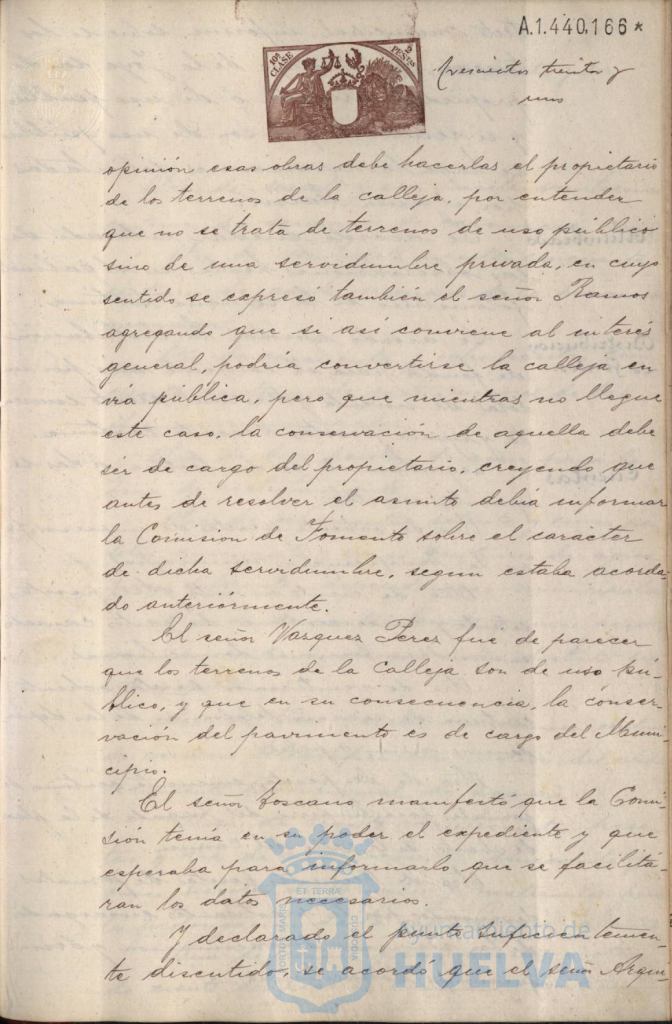 A.1.440,166 *
10ª CLASE
2 PESETAS
trescientos treinta y
uno
opinión esas obras debe hacerlas el propietario
de los terrenos de la calleja, por entender
que no se trata de terrenos de uso público
sino de una servidumbre privada, en cuyo
sentido se expresó también el señor Ramos
agregando que si así conviene al interés
general, podría convertirse la calleja en
vía pública, pero que mientras no llegue
este caso, la conservación de aquella debe
ser de cargo del propietario, creyendo que
antes de resolver el asunto debía informar
la Comision de Fomento sobre el carácter
de dicha servidumbre, segun estaba acorda-
do anteriórmente.
El señor Vazquez Perez fue de parecer
que los terrenos de la calleja son de uso pú-
blico, y que en su consecuencia, la conser-
vación del pavimento es de cargo del Muni-
cipio.
El señor Toscano manifestó que la Comi-
sión tenía en su poder el expediente y que
esperaba para informarlo que se facilitá-
ran los datos necesarios.
Y declarado el punto suficientemen-
te discutido, se acordó que el señor Argen-
PORTUS MARIS ET TERRÆ CUSTODIA
Ayuntamiento de
HUELVA